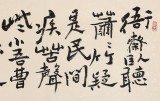 衙齋臥聽
蕭々竹疑
是民間
疾苦聲
些小吾曹